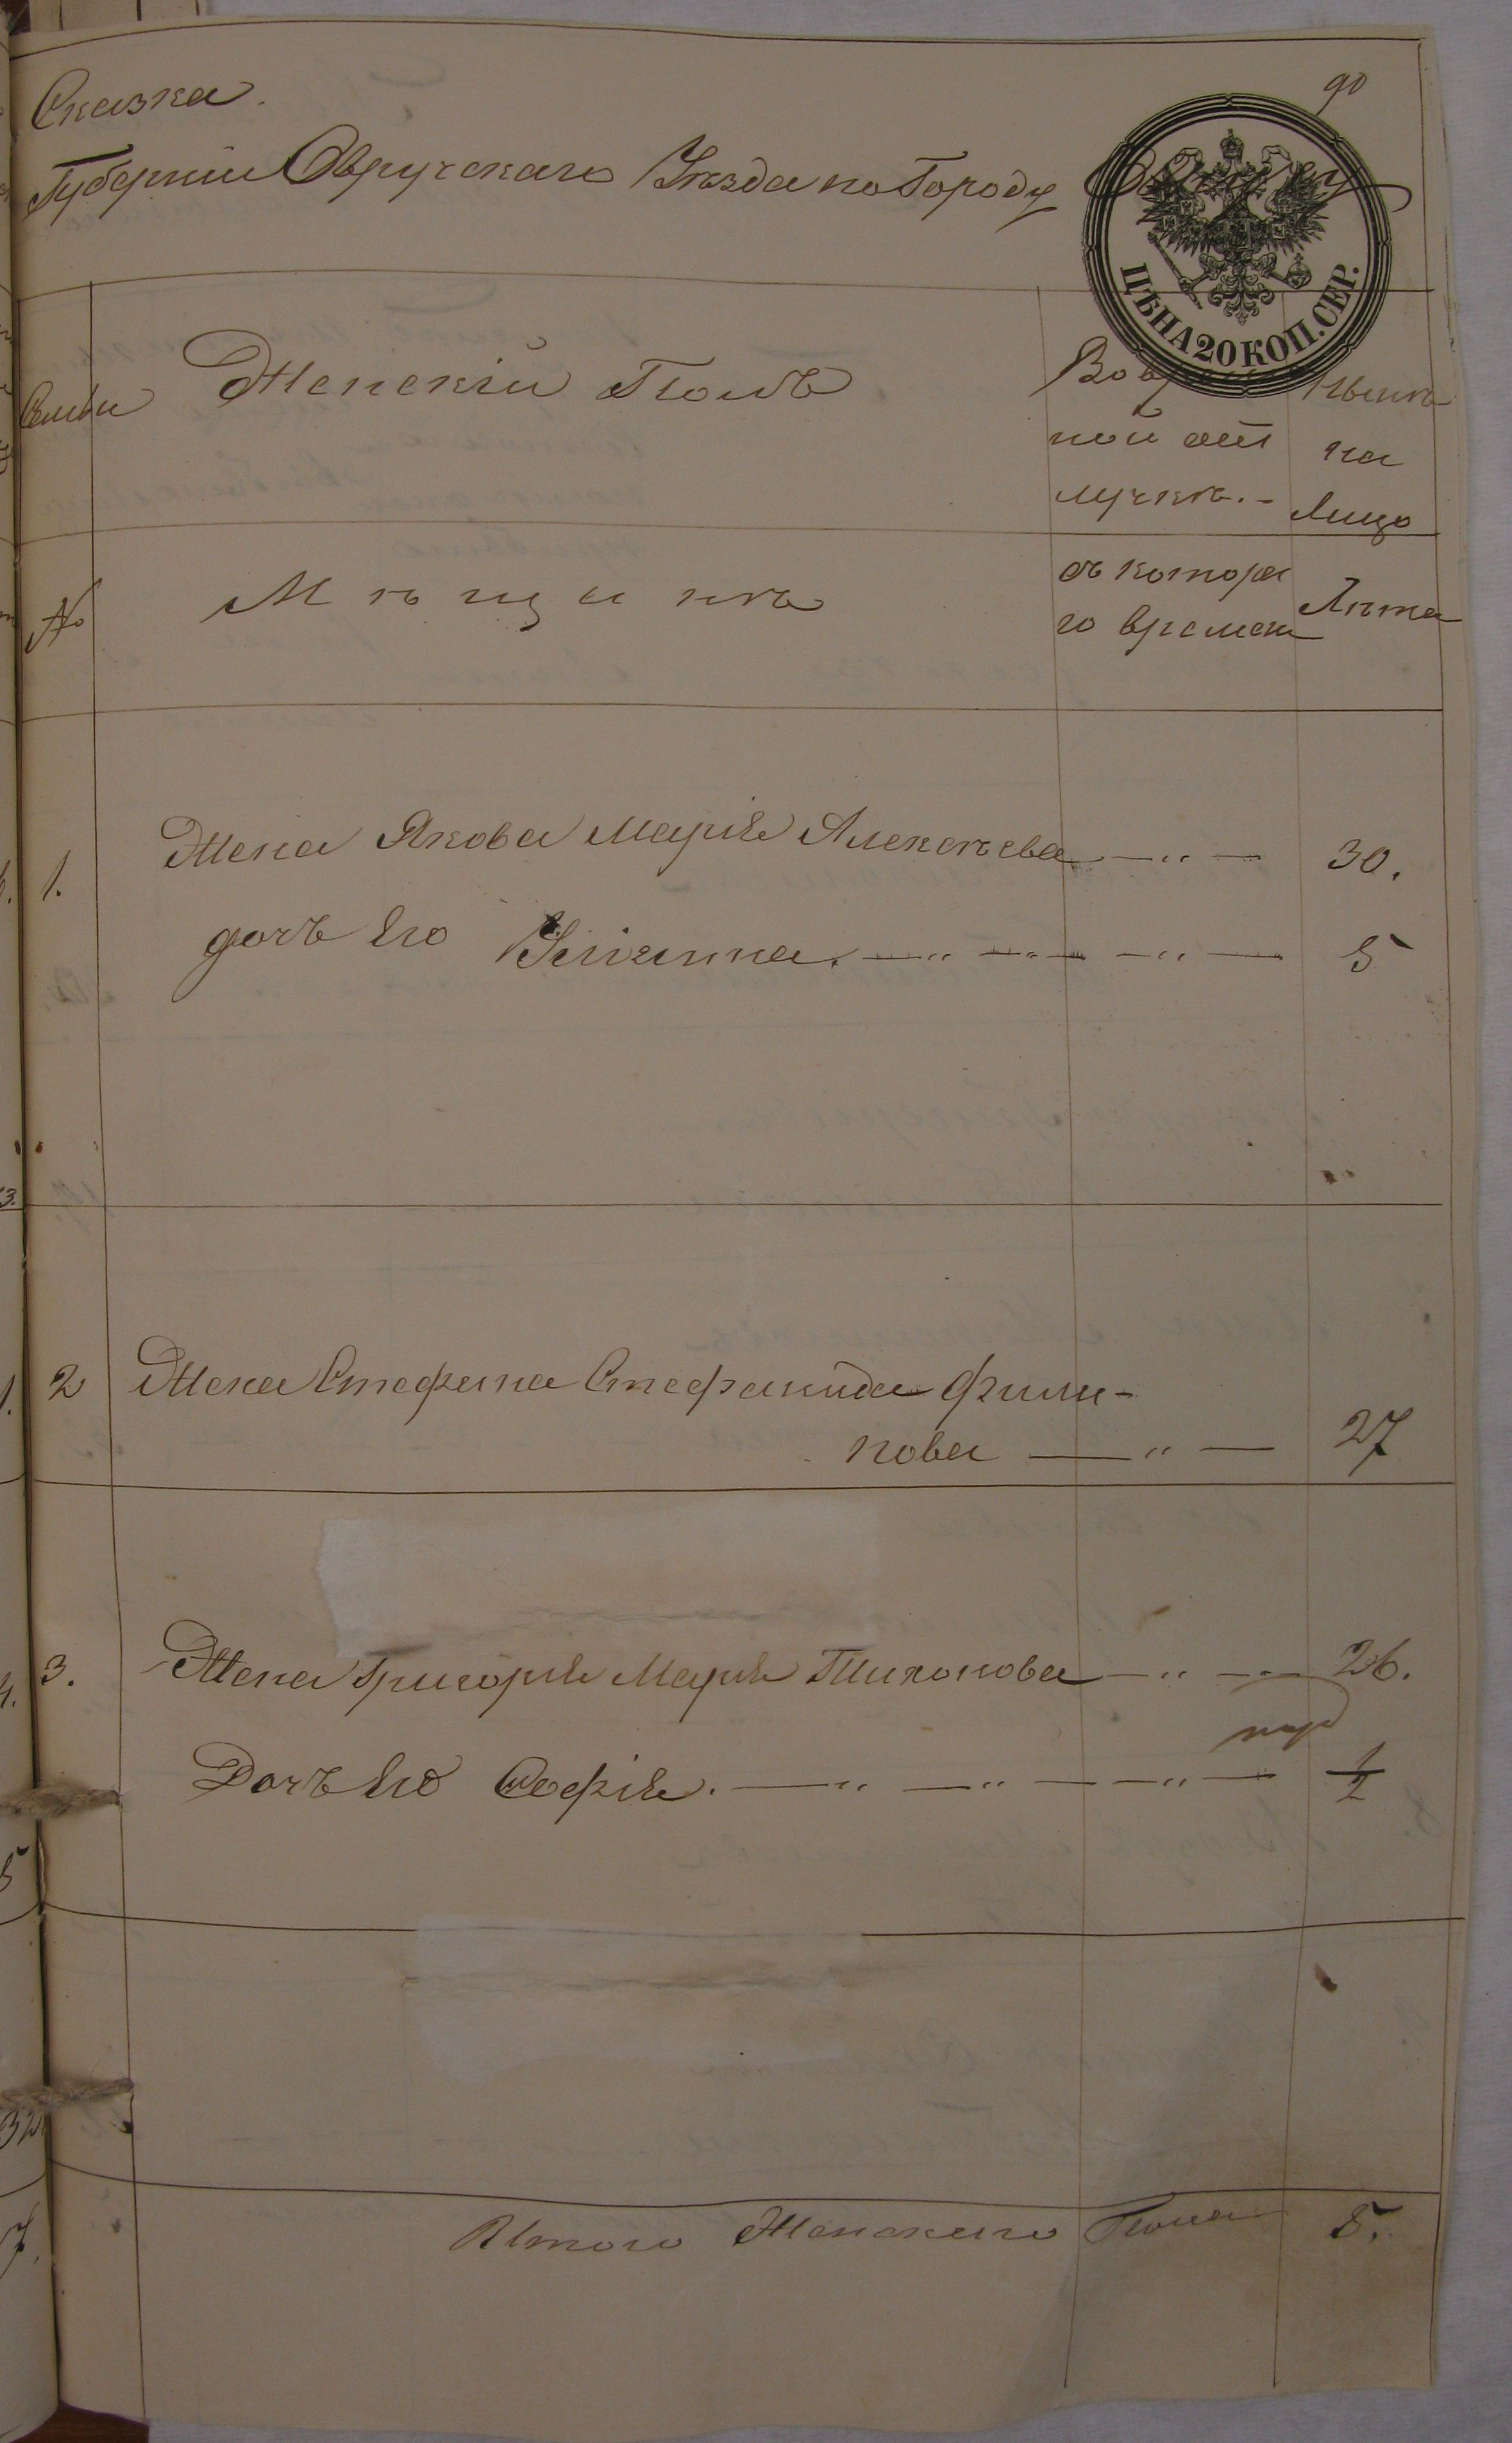 90
Сказка.
Губерніи Овручскаго Уѣзда по Городу
ЦѢНА 20 КОП. СЕР.
Семьи
Женскій Полъ
Во вре
ной отъ
лучкѣ.-
Нынѣ
на
Лицо
№
Мѣщанѣ
съ котора
го времени
Лѣта
1. Жена Якова Марія Алексѣева —„— 30.
дочь Его Уліанна. —„— —„— —„— 5
2 Жена Стефана Стефанида Фили-
пова —„— 27
3. Жена Григорія Марія Тихонова —„— — 26.
Дочь Его Софія. —„— —„— —„— 1/2
Итого Женскаго Пола 5.